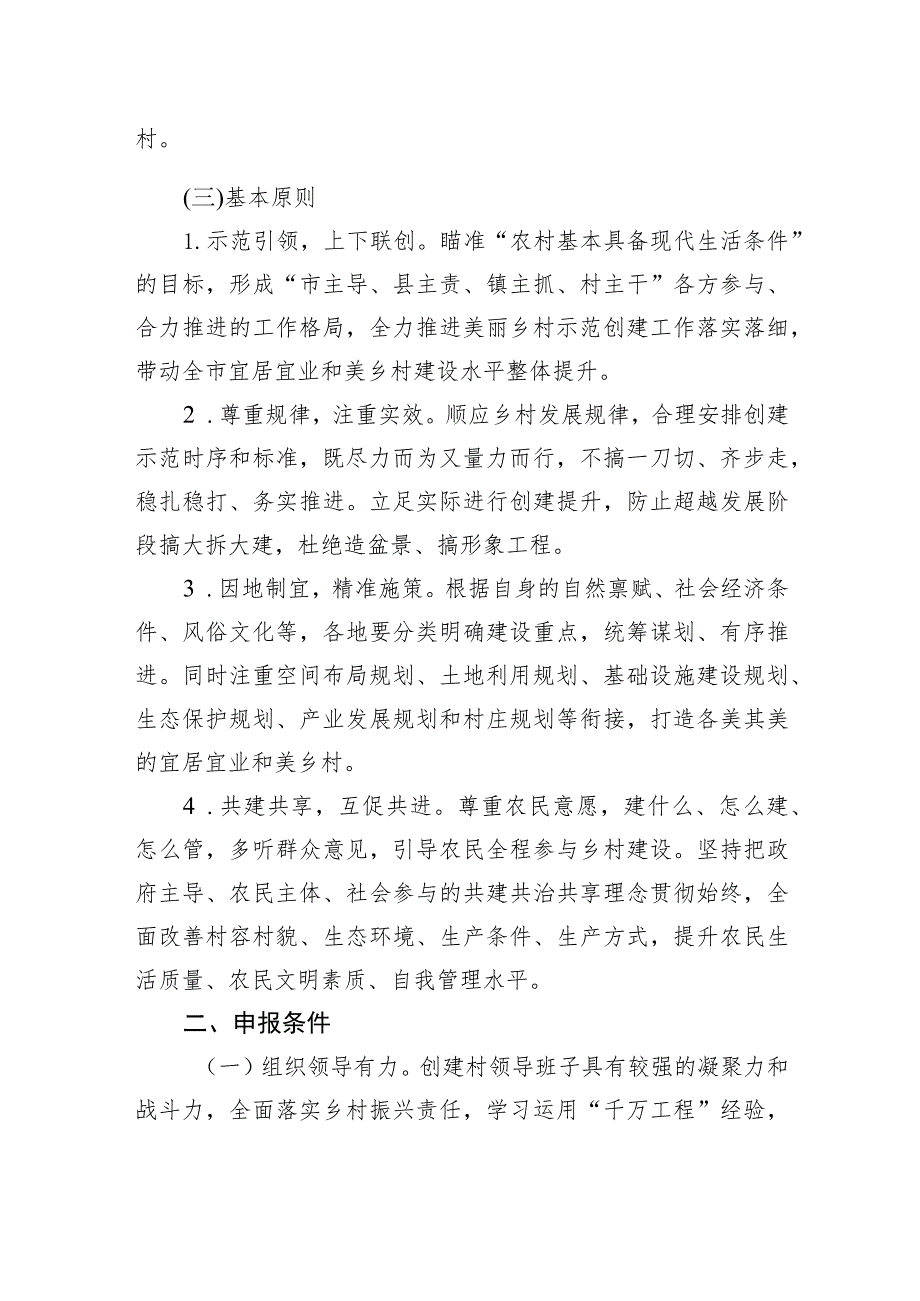 村。
(三)基本原则
1. 示范引领，上下联创。瞄准“农村基本具备现代生活条件”
的目标，形成“市主导、县主责、镇主抓、村主干”各方参与、
合力推进的工作格局，全力推进美丽乡村示范创建工作落实落细，
带动全市宜居宜业和美乡村建设水平整体提升。
2 . 尊重规律，注重实效。顺应乡村发展规律，合理安排创建
示范时序和标准，既尽力而为又量力而行，不搞一刀切、齐步走，
稳扎稳打、务实推进。立足实际进行创建提升，防止超越发展阶
段搞大拆大建，杜绝造盆景、搞形象工程。
3 . 因地制宜，精准施策。根据自身的自然禀赋、社会经济条
件、风俗文化等，各地要分类明确建设重点，统筹谋划、有序推
进。同时注重空间布局规划、土地利用规划、基础设施建设规划、
生态保护规划、产业发展规划和村庄规划等衔接，打造各美其美
的宜居宜业和美乡村。
4 . 共建共享，互促共进。尊重农民意愿，建什么、怎么建、
怎么管，多听群众意见，引导农民全程参与乡村建设。坚持把政
府主导、农民主体、社会参与的共建共治共享理念贯彻始终，全
面改善村容村貌、生态环境、生产条件、生产方式，提升农民生
活质量、农民文明素质、自我管理水平。
二、申报条件
（一）组织领导有力。创建村领导班子具有较强的凝聚力和
战斗力，全面落实乡村振兴责任，学习运用“千万工程”经验，